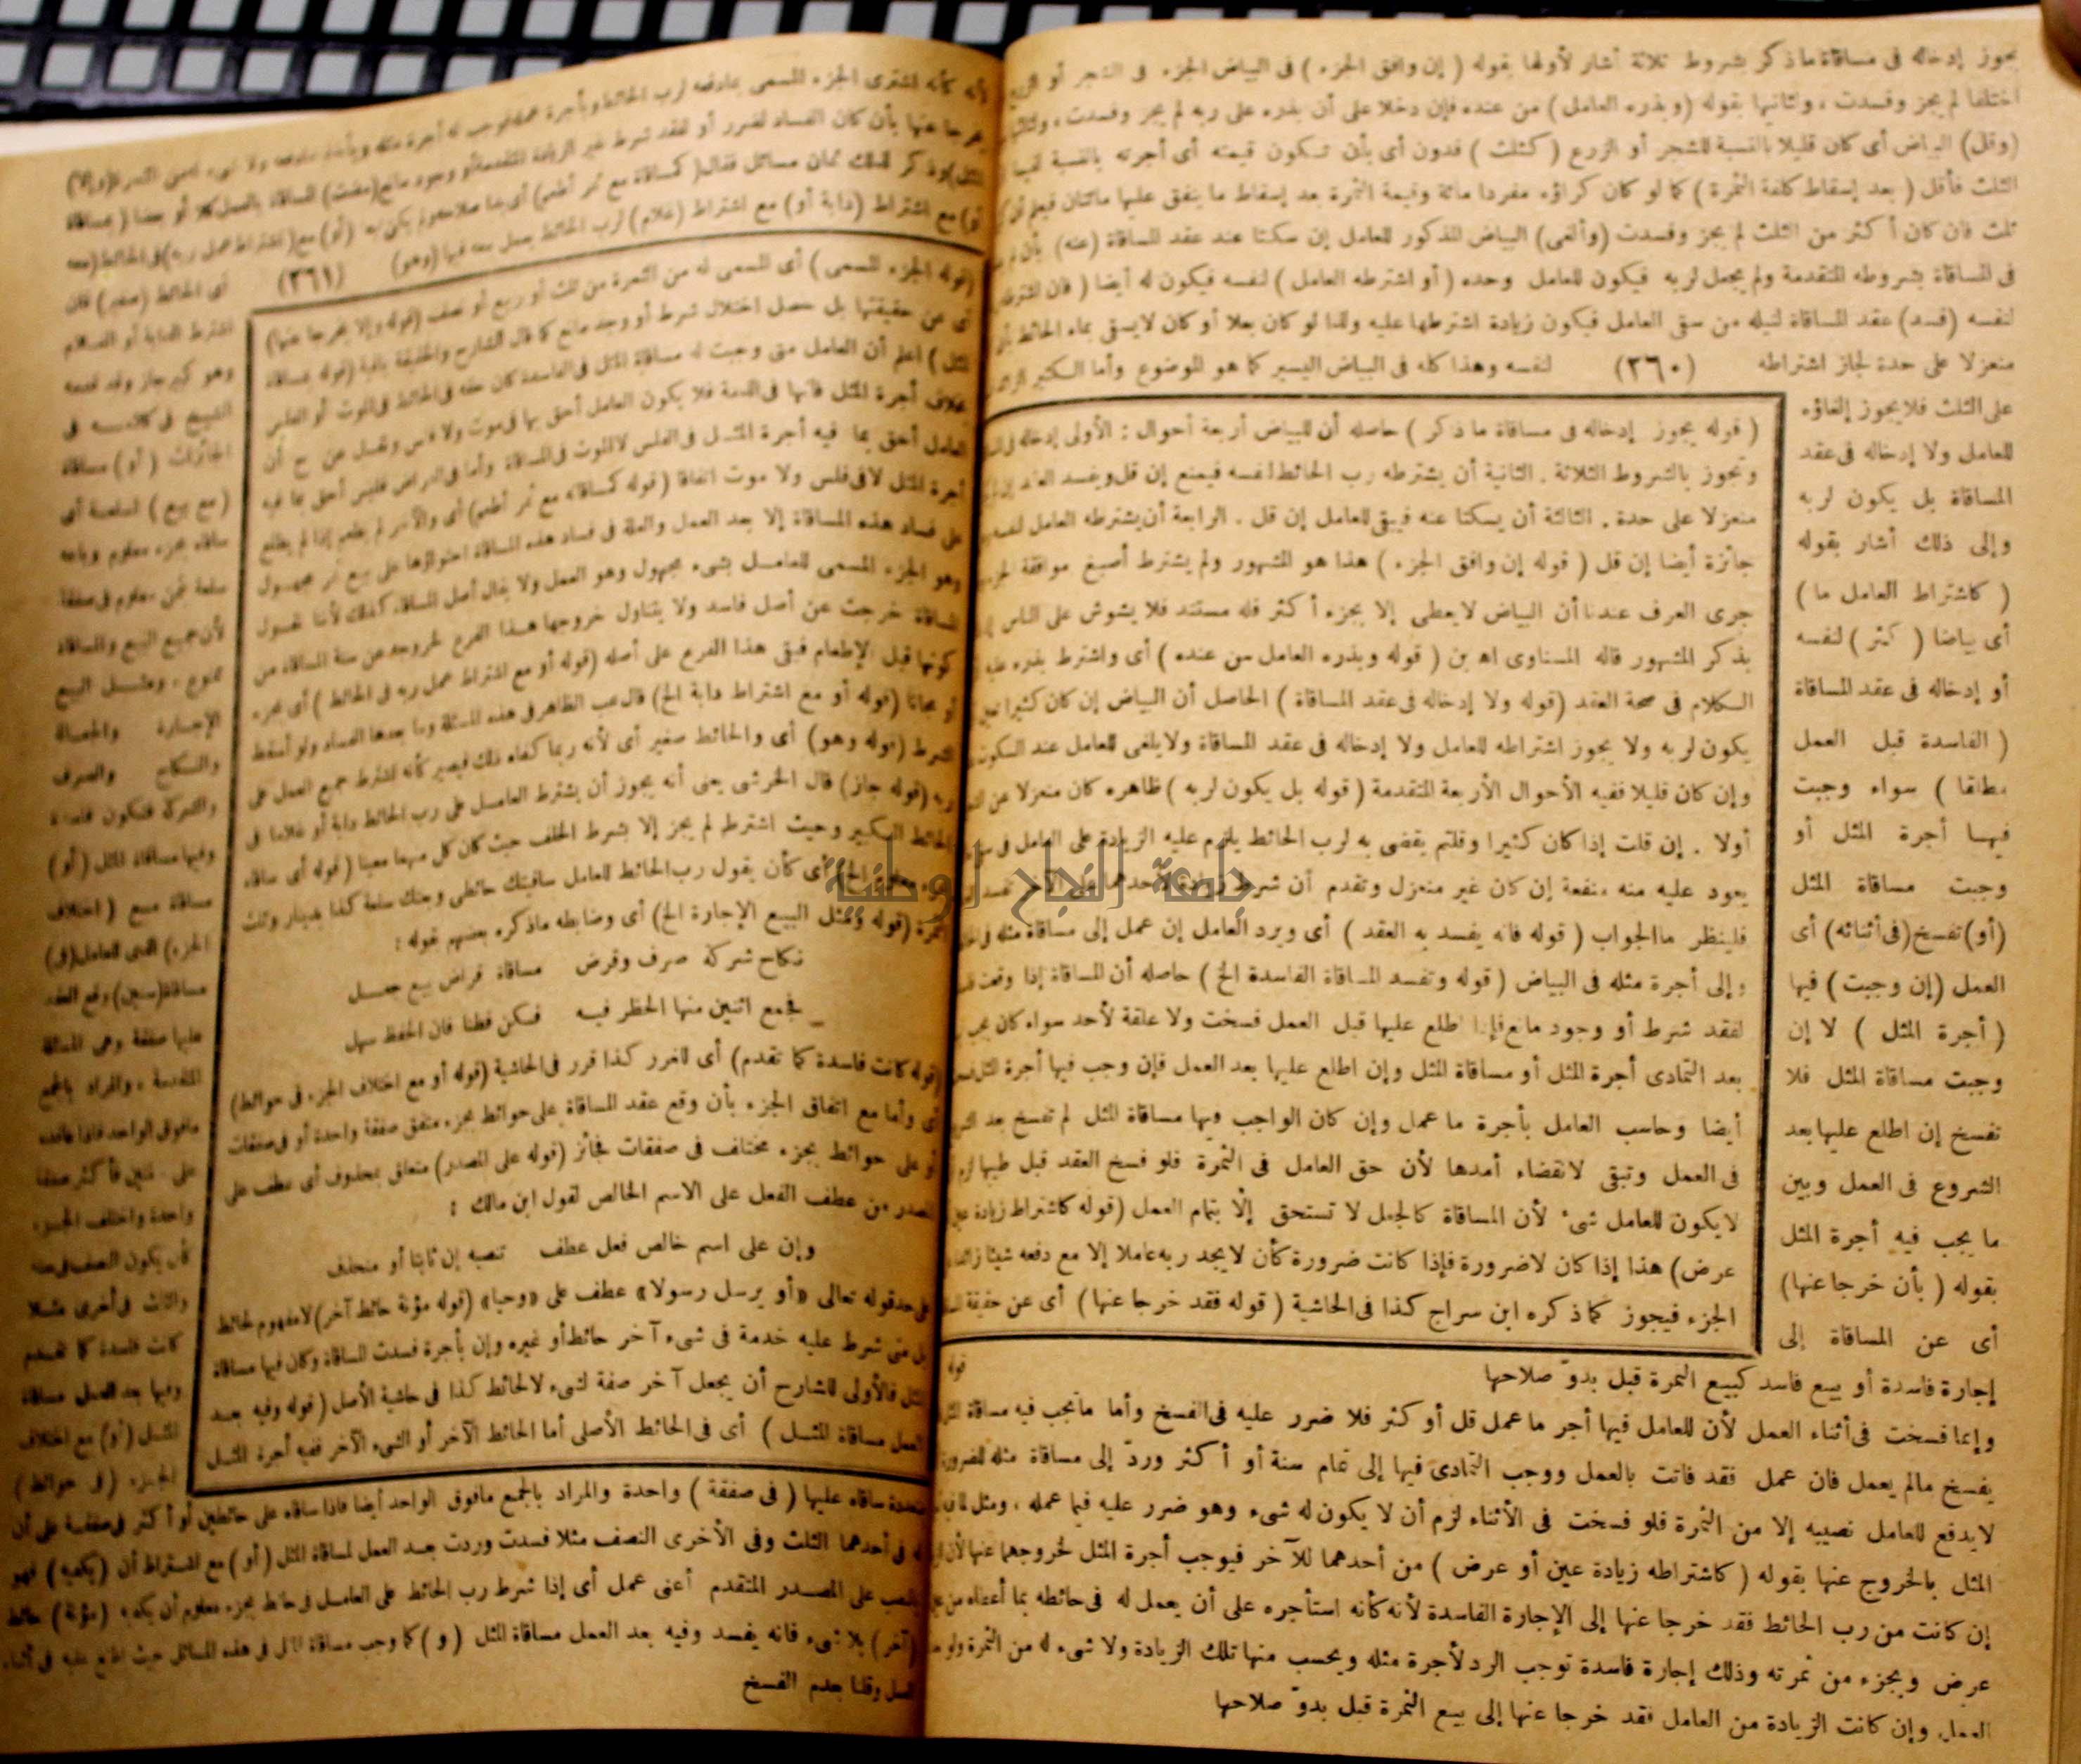 يجوز إدخاله فى مساقاة ماذكر بشروط ثلاثة أشار لأولها بقوله ( إن وافق الجزء ) فى البياض الجزء فى الشجر أو الزرع
اختلفا لم يجز وفسدت ، ولثانيها بقوله ( وبذره العامل ) من عنده فإن دخلا على أن بذره على ربه لم يجز وفسدت ،
( وقل ) البياض أى كان قليلا بالنسبة للشجر أو الزرع ( كثلث ) فدون أى بأن تكون قيمته أى أجرته بالنسبة
الثلث فأقل ( بعد إسقاط كلفة الثمرة ) كما لو كان كراؤه مفردا مائة وقيمة الثمرة بعد إسقاط ما ينفق عليها مائتان فيعلم أن
ثلث فان كان أكثر من الثلث لم يجز وفسدت ( وألغى ) البياض المذكور للعامل إن سكتا عند عقد المساقاة ( عنه ) بأن لم
فى المساقاة بشروطه المتقدمة ولم يجعل لربه فيكون للعامل وحده ( أو اشترطه العامل ) لنفسه فيكون له أيضا ( فان اشترطه
لنفسه ( فسد ) عقد المساقاة لنيله من سقى العامل فيكون زيادة اشترطها عليه ولذا لو كان بعلا أو كان لا يسقى بماء الحائط
منعزلا على حدة لجاز اشتراطه (٣٦٠) لنفسه وهذا كله فى البياض اليسير كما هو الموضوع وأما الكثير
على الثلث فلا يجوز إلغاؤه
للعامل ولا إدخاله فى عقد
المساقاة بل يكون لربه
وإلى ذلك أشار بقوله
( كاشتراط العامل ما )
أى بياضا ( كثر ) لنفسه
أو إدخاله فى عقد المساقاة
( الفاسدة قبل العمل
مطلقا ) سواء وجبت
فيها أجرة المثل أو
وجبت مساقاة المثل
( أو ) تفسخ ( فى أثنائه ) أى
العمل ( إن وجبت ) فيها
( أجرة المثل ) لا إن
وجبت مساقاة المثل فلا
تفسخ إن اطلع عليها بعد
الشروع فى العمل وبين
ما يجب فيه أجرة المثل
بقوله ( بأن خرجا عنها )
أى عن المساقاة إلى
( قوله يجوز إدخاله فى مساقاة ما ذكر ) حاصله أن للبياض أربعة أحوال : الأولى إدخاله فى
وتجوز بالشروط الثلاثة . الثانية أن يشترطه رب الحائط لنفسه فيمنع إن قل ويفسد العقد
منعزلا على حدة . الثالثة أن يسكتا عنه فيبقى للعامل إن قل . الرابعة أن يشترطه العامل لنفسه
جائزة أيضا إن قل ( قوله إن وافق الجزء ) هذا هو المشهور ولم يشترط أصبغ موافقة
جرى العرف عندنا أن البياض لا يعطى إلا بجزء أكثر فله مستند فلا يشوش على الناس
بذكر المشهور قاله المسناوى اه بن ( قوله وبذره العامل من عنده ) أى واشترط بذره عليه
الكلام فى صحة العقد ( قوله ولا إدخاله فى عقد المساقاة ) الحاصل أن البياض إن كان كثيرا
يكون لربه ولا يجوز اشتراطه للعامل ولا إدخاله فى عقد المساقاة ولا يلغى للعامل عند السكوت
وإن كان قليلا ففيه الأحوال الأربعة المتقدمة ( قوله بل يكون لربه ) ظاهره كان منعزلا عن
أولا . إن قلت إذا كان كثيرا وقلتم يقضى به لرب الحائط يلزم عليه الزيادة على العامل فى
يعود عليه منه منفعة إن كان غير منعزل وتقدم أن شرط زيادة لأحدهما على الآخر
فلينظر ما الجواب ( قوله فانه يفسد به العقد ) أى ويرد العامل إن عمل إلى مساقاة مثله فى
وإلى أجرة مثله فى البياض ( قوله وتفسد المساقاة الفاسدة الخ ) حاصله أن المساقاة إذا وقعت
لفقد شرط أو وجود مانع فإذا اطلع عليها قبل العمل فسخت ولا علقة لأحد سواء كان يجب
بعد التمادى أجرة المثل أو مساقاة المثل وإن اطلع عليها بعد العمل فإن وجب فيها أجرة المثل
أيضا وحاسب العامل بأجرة ما عمل وإن كان الواجب فيها مساقاة المثل لم تفسخ بعد
فى العمل وتبقى لانقضاء أمدها لأن حق العامل فى الثمرة فلو فسخ العقد قبل طيبها لزم
لا يكون للعامل شىء لأن المساقاة كالجعل لا تستحق إلا بتمام العمل ( قوله كاشتراط زيادة عين
عرض ) هذا إذا كان لا ضرورة فإذا كانت ضرورة كأن لا يجد ربه عاملا إلا مع دفعه شيئا زائدا
الجزء فيجوز كما ذكره ابن سراج كذا فى الحاشية ( قوله فقد خرجا عنها ) أى عن حقيقة
قوله
إجارة فاسدة أو بيع فاسد كبيع الثمرة قبل بدوّ صلاحها
وإنما فسخت فى أثناء العمل لأن للعامل فيها أجر ما عمل قل أو كثر فلا ضرر عليه فى الفسخ وأما ما تجب فيه مساقاة المثل
يفسخ مالم يعمل فان عمل فقد فاتت بالعمل ووجب التمادى فيها إلى تمام سنة أو أكثر وردّ إلى مساقاة مثله للضرورة
لا يدفع للعامل نصيبه إلا من الثمرة فلو فسخت فى الأثناء لزم أن لا يكون له شىء وهو ضرر عليه فيما عمله ، ومثل
المثل بالخروج عنها بقوله ( كاشتراطه زيادة عين أو عرض ) من أحدهما للآخر فيوجب أجرة المثل لخروجهما عنها
إن كانت من رب الحائط فقد خرجا عنها إلى الإجارة الفاسدة لأنه كأنه استأجره على أن يعمل له فى حائطه بما أعطاه من
عرض وبجزء من ثمرته وذلك إجارة فاسدة توجب الرد لأجرة مثله ويحسب منها تلك الزيادة ولا شىء له من الثمرة ولو
العمل وإن كانت الزيادة من العامل فقد خرجا عنها إلى بيع الثمرة قبل بدوّ صلاحها
لأنه كأنه اشترى الجزء المسمى بما دفعه لرب الحائط وبأجرة عمله فوجب له أجرة مثله ويأخذ ما دفعه ولا شىء له من الثمرة
يخرجا عنها بأن كان الفساد لغرر أو لفقد شرط غير الزيادة المتقدمة أو وجود مانع ( مضت ) المساقاة بالعمل كلا أو بعضا ( بمساقاة
المثل ) وذكر لذلك ثمان مسائل فقال ( كمساقاة مع ثمر أطعم ) أى بدا صلاحه ولم يكن تبعا ( أو ) مع ( اشتراط عمل ربه ) فى الحائط ( معه
أو ) مع اشتراط ( دابة أو ) مع اشتراط ( غلام ) لرب الحائط يعمل معه فيها ( وهو ) (٣٦١)
أى الحائط ( صغير ) فان
اشترط الدابة أو الغلام
وهو كبير جاز وقد قدمه
الشيخ فى كلامه فى
الجائزات ( أو ) مساقاة
( مع بيع ) لسلعة أى
ساقاه بجزء معلوم وباعه
سلعة بثمن معلوم فى صفقة
لأن جميع البيع والمساقاة
ممنوع ، ومثل البيع
الإجارة والجعالة
والنكاح والصرف
والشركة فتكون فاسدة
وفيها مساقاة المثل ( أو )
مساقاة مع ( اختلاف
الجزء ) الذى للعامل ( فى )
مساقاة ( سنين ) وقع العقد
عليها صفقة وهى المسألة
المتقدمة ، والمراد بالجمع
مافوق الواحد فاذا عاقده
على سنتين فأكثر صفقة
واحدة واختلف الجزء
كأن يكون النصف فى سنة
والثلث فى أخرى مثلا
كانت فاسدة كما تقدم
وفيها بعد العمل مساقاة
المثل ( أو ) مع اختلاف
الجزء ( فى حوائط )
( قوله الجزء المسمى ) أى المسمى له من الثمرة من ثلث أو ربع أو نصف ( قوله وإلا يخرجا عنها )
أى عن حقيقتها بل حصل اختلال شرط أو وجد مانع كما قال الشارح والحقيقة باقية ( قوله بمساقاة
المثل ) اعلم أن العامل متى وجبت له مساقاة المثل فى الفاسدة كان حقه فى الحائط فى الموت أو الفلس
بخلاف أجرة المثل فانها فى الذمة فلا يكون العامل أحق بها فى موت ولا فلس ونقل عن ح أن
العامل أحق بما فيه أجرة المثل فى الفلس لا الموت فى المساقاة وأما فى القراض فليس أحق بما فيه
أجرة المثل لا فى فلس ولا موت اتفاقا ( قوله كمساقاته مع ثمر أطعم ) أى والأمر لم يطلع
على فساد هذه المساقاة إلا بعد العمل والعلة فى فساد هذه المساقاة احتواؤها على بيع ثمر مجهول
وهو الجزء المسمى للعامل بشىء مجهول وهو العمل ولا يقال أصل المساقاة كذلك لأنا نقول
المساقاة خرجت عن أصل فاسد ولا يتناول خروجها هذا الفرع لخروجه عن سنة المساقاة من
كونها قبل الإطعام فبقى هذا الفرع على أصله ( قوله أو مع اشتراط عمل ربه فى الحائط ) أى بجزء
أو مجانا ( قوله أو مع اشتراط دابة الخ ) قال عب الظاهر فى هذه المسئلة وما بعدها الفساد ولو أسقط
الشرط ( قوله وهو ) أى والحائط صغير أى لأنه ربما كفاه ذلك فيصير كأنه اشترط جميع العمل على
ربه ( قوله جاز ) قال الخرشى يعنى أنه يجوز أن يشترط العامل على رب الحائط دابة أو غلاما فى
الحائط الكبير وحيث اشترط لم يجز إلا بشرط الخلف حيث كان كل منهما معينا ( قوله أى ساقاه
بجزء معلوم الخ ) أى كأن يقول رب الحائط للعامل ساقيتك حائطى وبعتك سلعة كذا بدينار وثلث
الثمرة ( قوله ومثل البيع الإجارة الخ ) أى وضابطه ماذكره بعضهم بقوله :
نكاح شركة صرف وقرض مساقاة قراض بيع جعل
فجمع اثنين منها الحظر فيه فكن فطنا فان الحفظ سهل
( قوله كانت فاسدة كما تقدم ) أى للغرر كذا قرر فى الحاشية ( قوله أو مع اختلاف الجزء فى حوائط )
أى وأما مع اتفاق الجزء بأن وقع عقد المساقاة على حوائط بجزء متفق صفقة واحدة أو فى صفقات
أو على حوائط بجزء مختلف فى صفقات فجائز ( قوله على المصدر ) متعلق بمحذوف أى عطف على
المصدر من عطف الفعل على الاسم الخالص لقول ابن مالك :
وإن على اسم خالص فعل عطف تنصبه إن ثابتا أو منحذف
على حد قوله تعالى «أو يرسل رسولا» عطف على «وحيا» ( قوله مؤنة حائط آخر ) لا مفهوم لحائط
بل متى شرط عليه خدمة فى شىء آخر حائط أو غيره وإن بأجرة فسدت المساقاة وكان فيها مساقاة
المثل فالأولى للشارح أن يجعل آخر صفة لشىء لا لحائط كذا فى حاشية الأصل ( قوله وفيه بعد
العمل مساقاة المثل ) أى فى الحائط الأصلى أما الحائط الآخر أو الشىء الآخر ففيه أجرة المثل
متعددة ساقاه عليها ( فى صفقة ) واحدة والمراد بالجمع مافوق الواحد أيضا فاذا ساقاه على حائطين أو أكثر فى صفقة على أن
له فى أحدهما الثلث وفى الأخرى النصف مثلا فسدت وردت بعد العمل لمساقاة المثل ( أو ) مع اشتراط أن ( يكفيه ) فهو
بالنصب على المصدر المتقدم أعنى عمل أى إذا شرط رب الحائط على العامل فى حائط بجزء معلوم أن يكفيه ( مؤنة ) حائط
( آخر ) بلا شىء فانه يفسد وفيه بعد العمل مساقاة المثل ( و ) كما وجب مساقاة المثل فى هذه المسائل حيث اطلع عليه فى أثناء
العمل وقلنا بعدم الفسخ
جامعة النجاح الوطنية